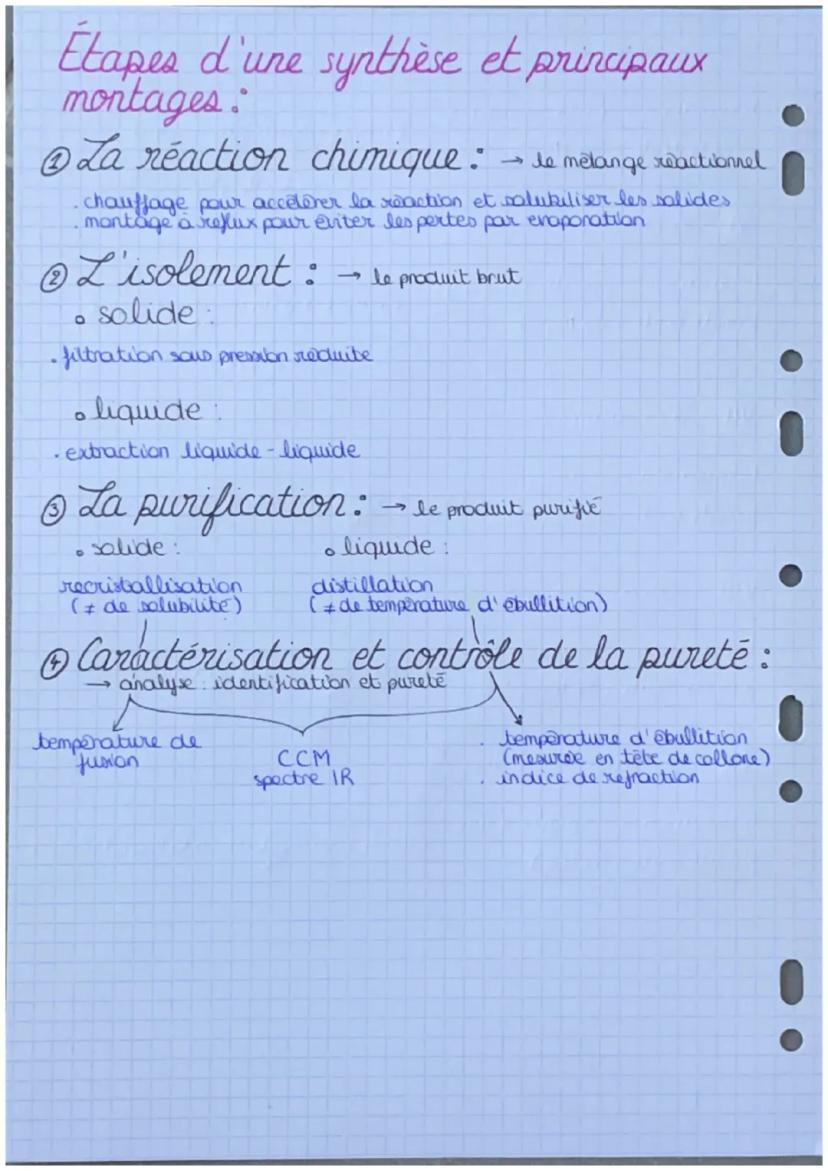 Étapes d'une synthèse et principaux
montages :
① La réaction chimique : → le mélange réactionnel
. chauffage pour accélérer la réaction et solubiliser les solides
. montage à reflux pour éviter les pertes par evaporation
② L'isolement : → le produit brut
∘ solide :
. filtration sous pression réduite
∘ liquide :
. extraction liquide - liquide
③ La purification : → le produit purifié
∘ solide : ∘ liquide :
recristallisation distillation
(≠ de solubilité) (≠ de température d'ébullition)
④ Caractérisation et contrôle de la pureté :
→ analyse : identification et pureté
température de . température d'ébullition
fusion CCM (mesurée en tête de collone)
spectre IR . indice de refraction